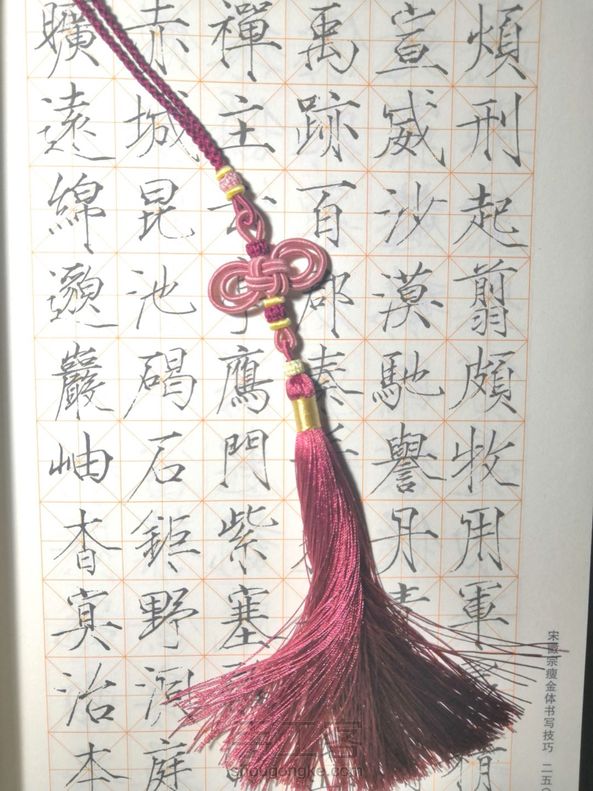 煩刑起翦頗牧用軍精
宣威沙漠馳譽丹青
禹跡百郡秦
禪主云亭鷹門紫塞
赤城昆池碣石鉅野洞庭
曠遠綿邈巖岫杳冥治本
宋徽宗瘦金体书写技巧 二五
shougongke.com